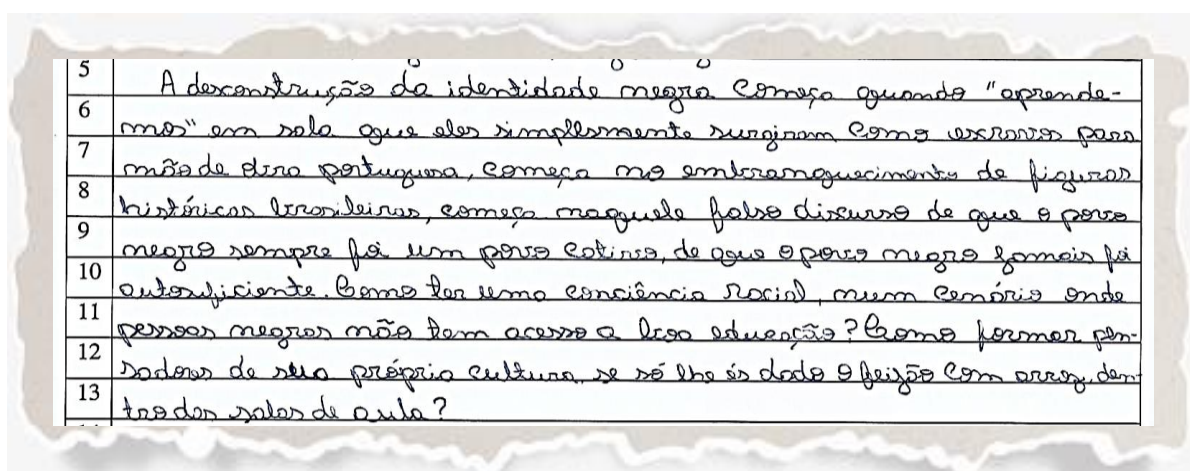 5 A desconstrução da identidade negra começa quando "aprende-
6 mos" em sala que eles simplesmente surgiram como escravos para
7 mão de obra portuguesa, começa no embranquecimento de figuras
8 históricas brasileiras, começa naquele falso discurso de que o povo
9 negro sempre foi um povo cativo, de que o povo negro jamais foi
10 autosuficiente. Como ter uma consciência racial, num cenário onde
11 pessoas negras não tem acesso a boa educação? Como formar pen-
12 sadores de sua própria cultura se só lhe és dado o feijão com arroz, den-
13 tro das salas de aula?